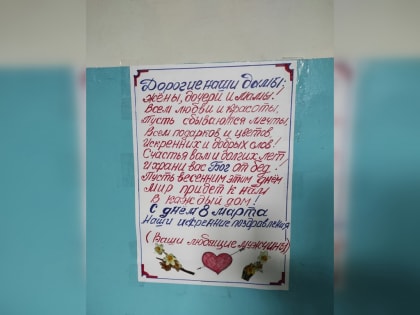 Дорогие наши дамы;
Жёны, дочери и мамы!
Всем любви и красоты,
Пусть сбываются мечты,
Всем подарков и цветов,
Искренних и добрых слов!
Счастья вам и долгих лет
И храни вас Бог от бед.
Пусть весенним этим днём
Мир придёт к нам
В каждый дом!
С днем 8 марта
Наши искренние поздравления
(Ваши любящие мужчины)